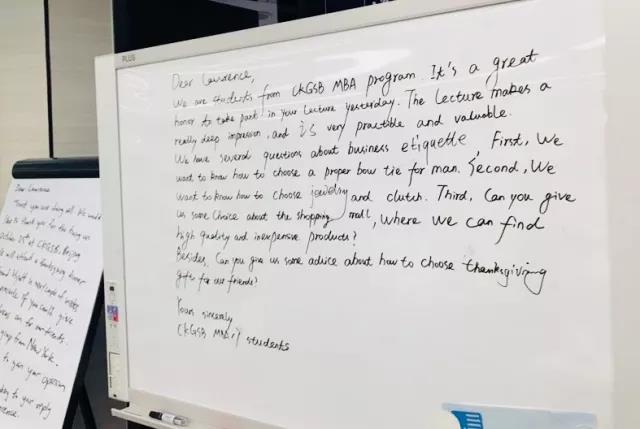 PLUS
Dear Lawrence,
We are students from CKGSB MBA program. It's a great
honor to take part in your lecture yesterday. The lecture makes a
really deep impression, and is very practible and valuable.
We have several questions about business etiquette, First, We
want to know how to choose a proper bow tie for man. Second, We
want to know how to choose jewelry and clutch. Third, Can you give
us some choice about the shopping mall, where we can find
high quality and inexpensive products?
Besides, Can you give us some advice about how to choose thanksgiving
gift for our friends?
Yours sincerely
CKGSB MBA students
Dear Lawrence
Thank you
like to thank you for the
October 25th at CKGSB, Beijing
will attend a thanksgiving dinner
if you could give
for our friends.
from New York.
to your reply